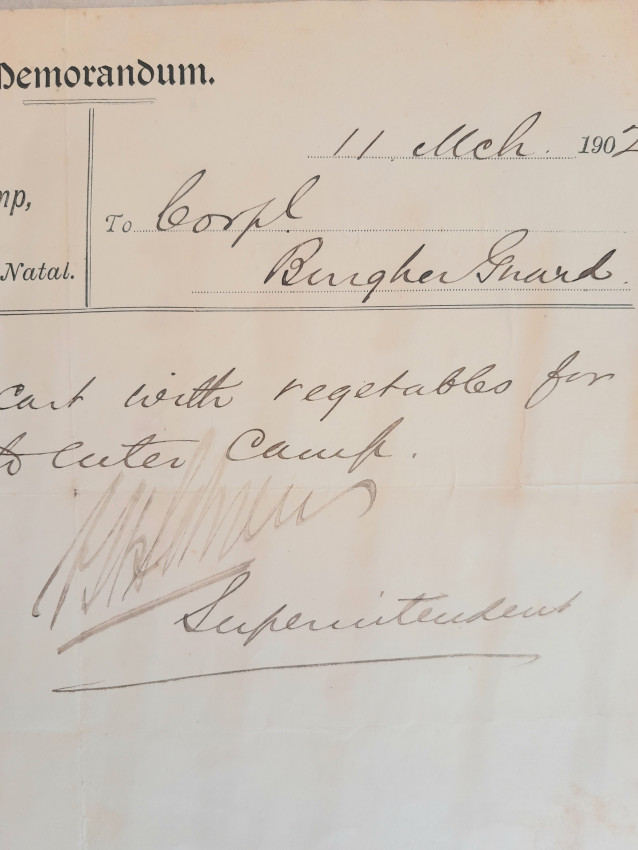 Memorandum.
11 Mch. 1902
mp,
To Corpl
Natal.
Guard.
cart with vegetables for
to enter Camp.
Superintendent